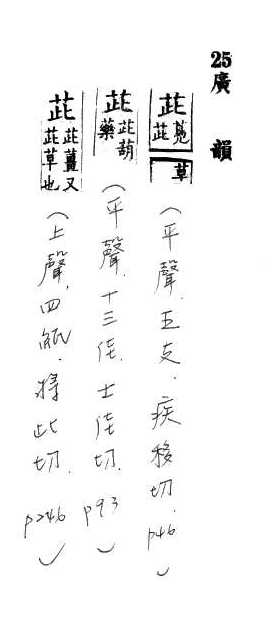 25廣韻
茈鳧茈草(平聲.五支.疾移切.p46)
茈茈葫藥(平聲.十三佳.士佳切.p93)
茈茈薑又茈草也(上聲.四紙.將此切.p246)